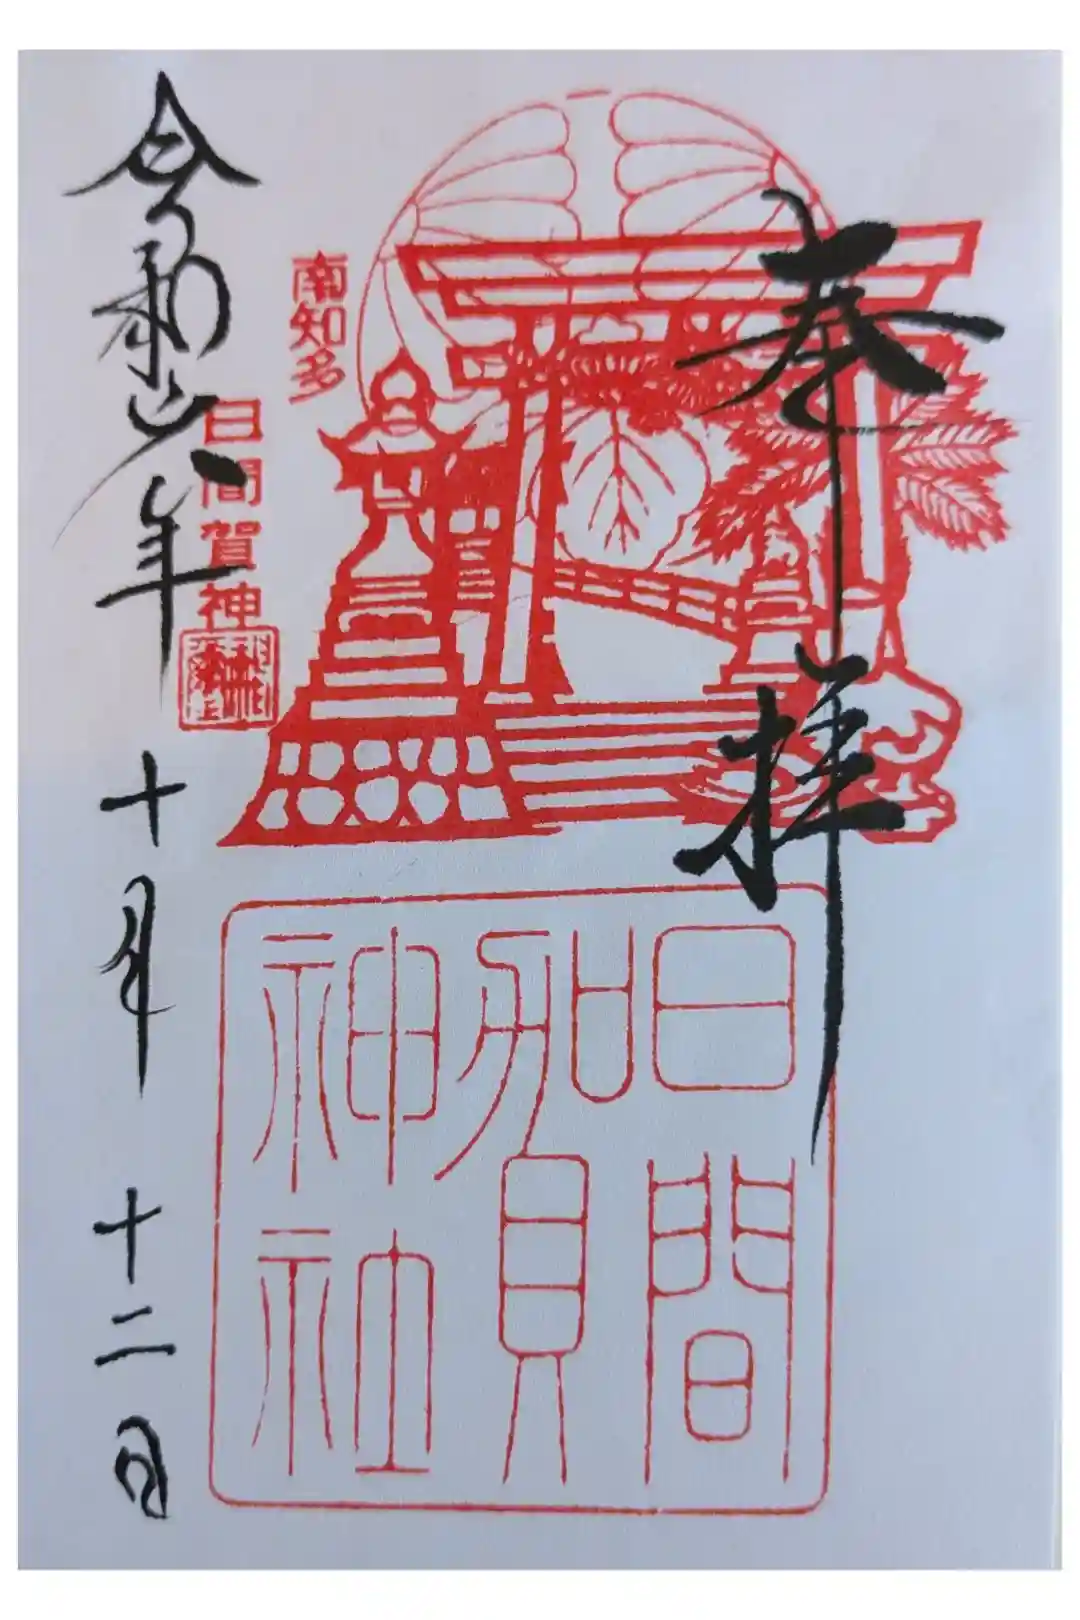 奉拝
日間賀
神社
南知多
日間賀神
令和六年十月十二日